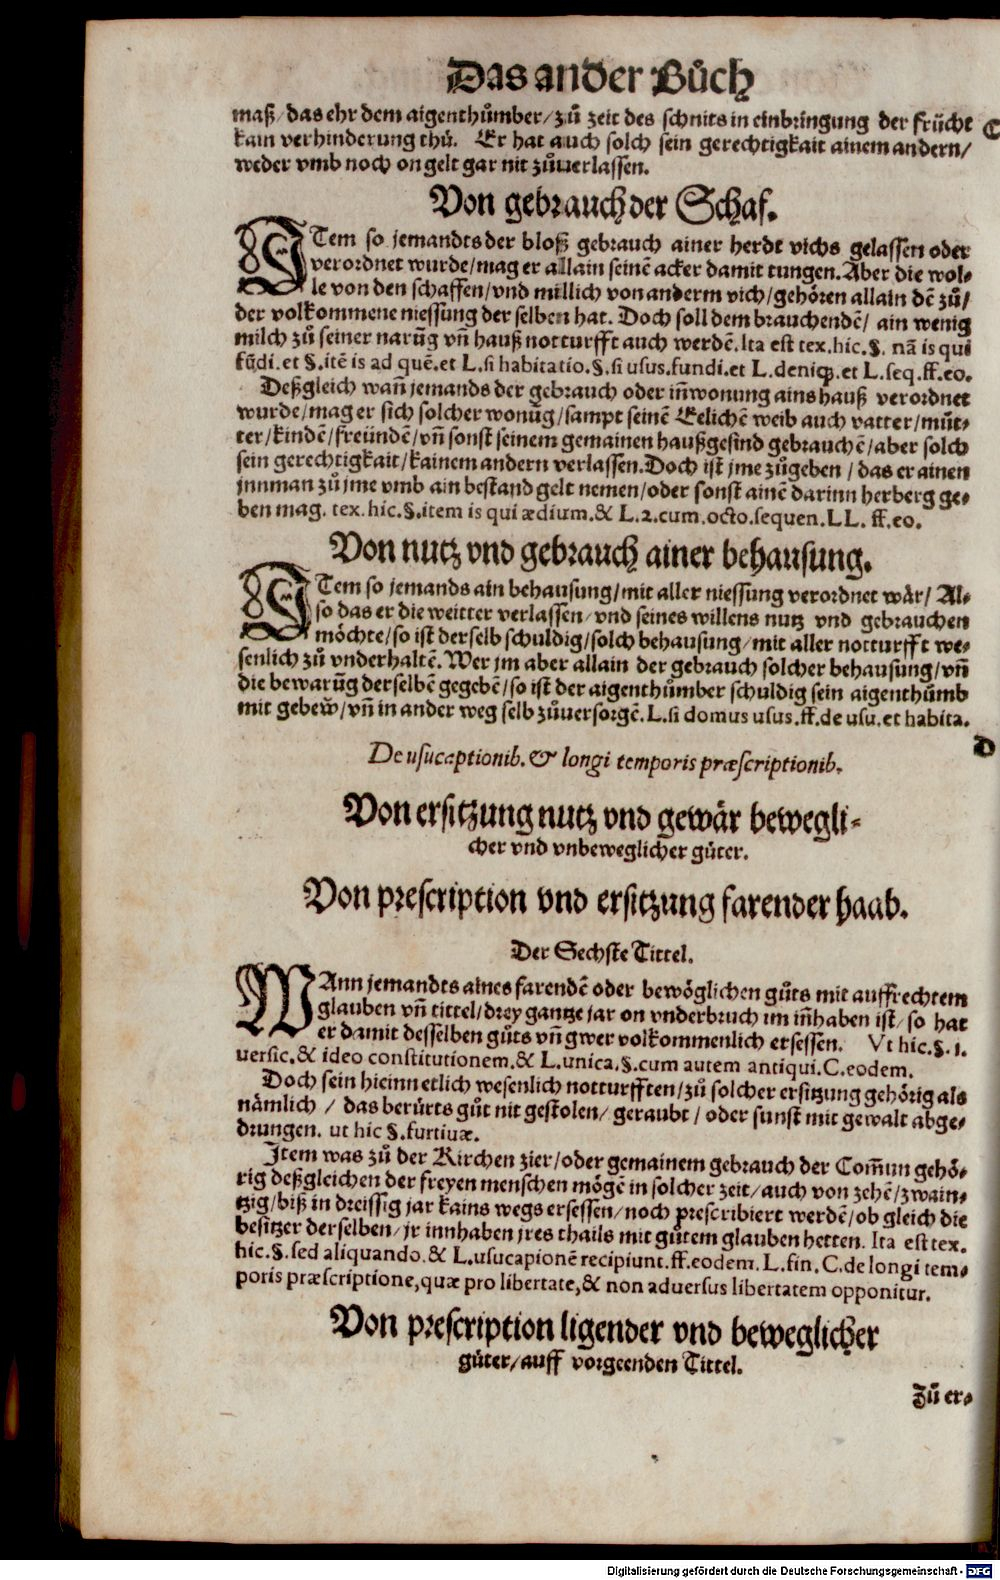 Das ander Bůch
maß/das ehr dem aigenthůmber/zů zeit des schnits in einbringung der frücht
kain verhinderung thů. Er hat auch solch sein gerechtigkait ainem andern/
weder vmb noch on gelt gar nit zůuerlassen.
C
Von gebrauch der Schaf.
ITem so jemandts der bloß gebrauch ainer herdt vichs gelassen oder
verordnet wurde/mag er allain seinẽ acker damit tungen. Aber die wol-
le von den schaffen/vnd millich von anderm vich/gehören allain dẽ zů/
der volkommene niessung der selben hat. Doch soll dem brauchendẽ/ ain wenig
milch zů seiner narũg vñ hauß notturfft auch werdẽ. Ita est tex. hic. §. nã is qui
fũdi. et §. itẽ is ad quẽ. et L. si habitatio. §. si usus. fundi. et L. deniq. et L. seq. ff. eo.
Deßgleich wañ jemands der gebrauch oder iñwonung ains hauß verordnet
wurde/mag er sich solcher wonũg/sampt seinẽ Eelichẽ weib auch vatter/můt-
ter/kindẽ/freündẽ/vñ sonst seinem gemainen haußgesind gebrauchẽ/aber solch
sein gerechtigkait/kainem andern verlassen. Doch ist jme zůgeben/das er ainen
jnnman zů jme vmb ain bestand gelt nemen/oder sonst ainẽ darinn herberg ge-
ben mag. tex. hic. §. item is qui ædium. & L. 2. cum. octo. sequen. LL. ff. eo.
Von nutz vnd gebrauch ainer behausung.
ITem so jemands ain behausung/mit aller niessung verordnet wär/ Al-
so das er die weitter verlassen/vnd seines willens nutz vnd gebrauchen
möchte/so ist derselb schuldig/solch behausung/mit aller notturfft we-
senlich zů vnderhaltẽ. Wer jm aber allain der gebrauch solcher behausung/vñ
die bewarũg derselbẽ gegebẽ/so ist der aigenthůmber schuldig sein aigenthůmb
mit gebew/vñ in ander weg selb zůuersorgẽ. L. si domus usus. ff. de usu. et habita.
D
De usucaptionib. & longi temporis præscriptionib.
Von ersitzung nutz vnd gewär bewegli-
cher vnd vnbeweglicher güter.
Von prescription vnd ersitzung farender haab.
Der Sechste Tittel.
WAnn jemandts aines farendẽ oder bewöglichen gůts mit auffrechtem
glauben vñ tittel/drey gantze jar on vnderbruch im iñhaben ist/so hat
er damit desselben gůts vñ gwer volkommenlich ersessen. Vt hic. §. 1.
uersic. & ideo constitutionem. & L. unica. §. cum autem antiqui. C. eodem.
Doch sein hieinn etlich wesenlich notturfften/zů solcher ersitzung gehörig als
nämlich / das berürts gůt nit gestolen/ geraubt / oder sunst mit gewalt abge-
drungen. ut hic §. furtiuæ.
Item was zů der Kirchen zier/oder gemainem gebrauch der Com̃un gehö-
rig deßgleichen der freyen menschen mögẽ in solcher zeit/auch von zehẽ/zwain-
tzig/biß in dreissig jar kains wegs ersessen/noch prescribiert werdẽ/ob gleich die
besitzer derselben/jr innhaben jres thails mit gůtem glauben hetten. Ita est tex.
hic. §. sed aliquando. & L. usucapionẽ recipiunt. ff. eodem. L. fin. C. de longi tem-
poris præscriptione, quæ pro libertate, & non aduersus libertatem opponitur.
Von prescription ligender vnd beweglicher
güter/auff vorgeenden Tittel.
Zů er-
Digitalisierung gefördert durch die Deutsche Forschungsgemeinschaft - DFG